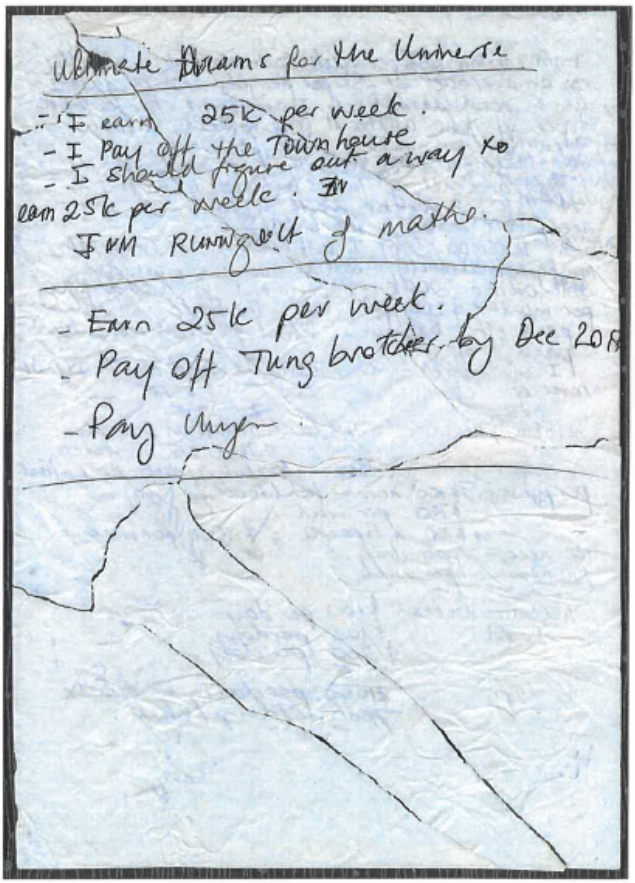 Ultimate Dreams for the Universe
- I earn 25k per week.
- I Pay off the Townhouse
- I should figure out a way to
earn 25k per week.
I am Running out of maths.
- Earn 25k per week.
- Pay off Tung brother by Dec 201
- Pay